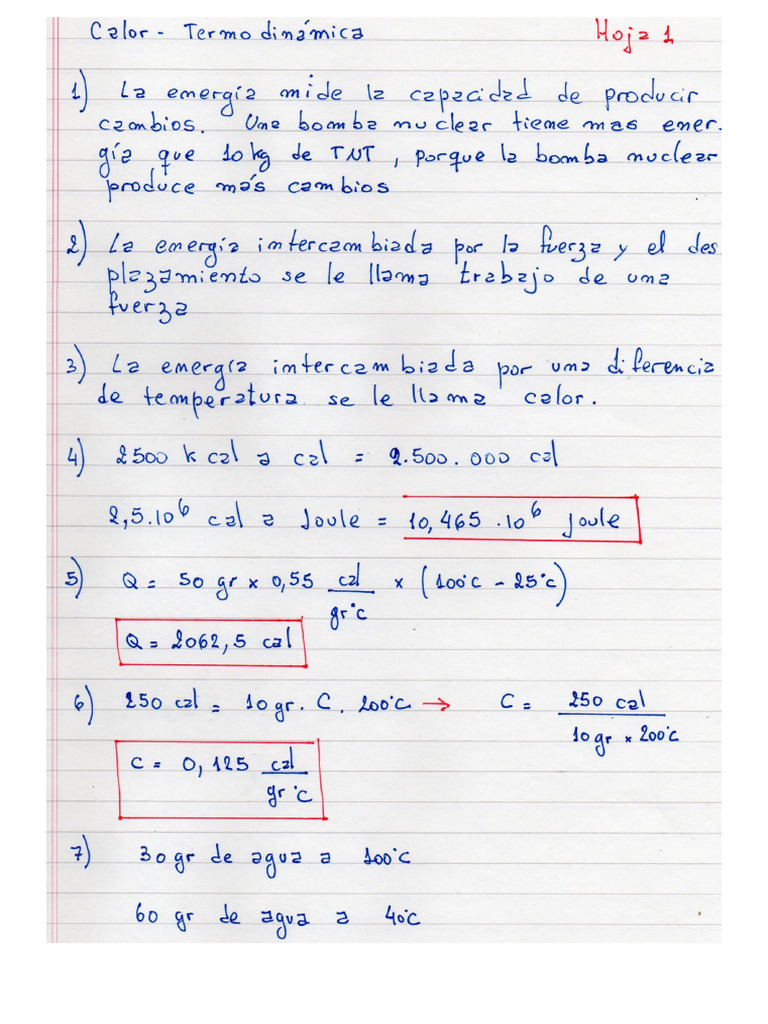 Calor - Termodinámica Hoja 1
1) La energía mide la capacidad de producir
cambios. Una bomba nuclear tiene mas ener.
gía que 10 kg de TNT, porque la bomba nuclear
produce más cambios
2) La energía intercambiada por la fuerza y el des
plazamiento se le llama trabajo de una
fuerza
3) La energía intercambiada por una diferencia
de temperatura se le llama calor.
4) 2500 k cal a cal = 2.500.000 cal
2,5.10⁶ cal a Joule = 10,465.10⁶ joule
5) Q = 50 gr × 0,55 cal/gr°C × (100°C - 25°C)
Q = 2062,5 cal
6) 250 cal = 10 gr. C. 200°C → C = 250 cal/10 gr × 200°C
C = 0,125 cal/gr°C
7) 30 gr de agua a 100°C
60 gr de agua a 40°C